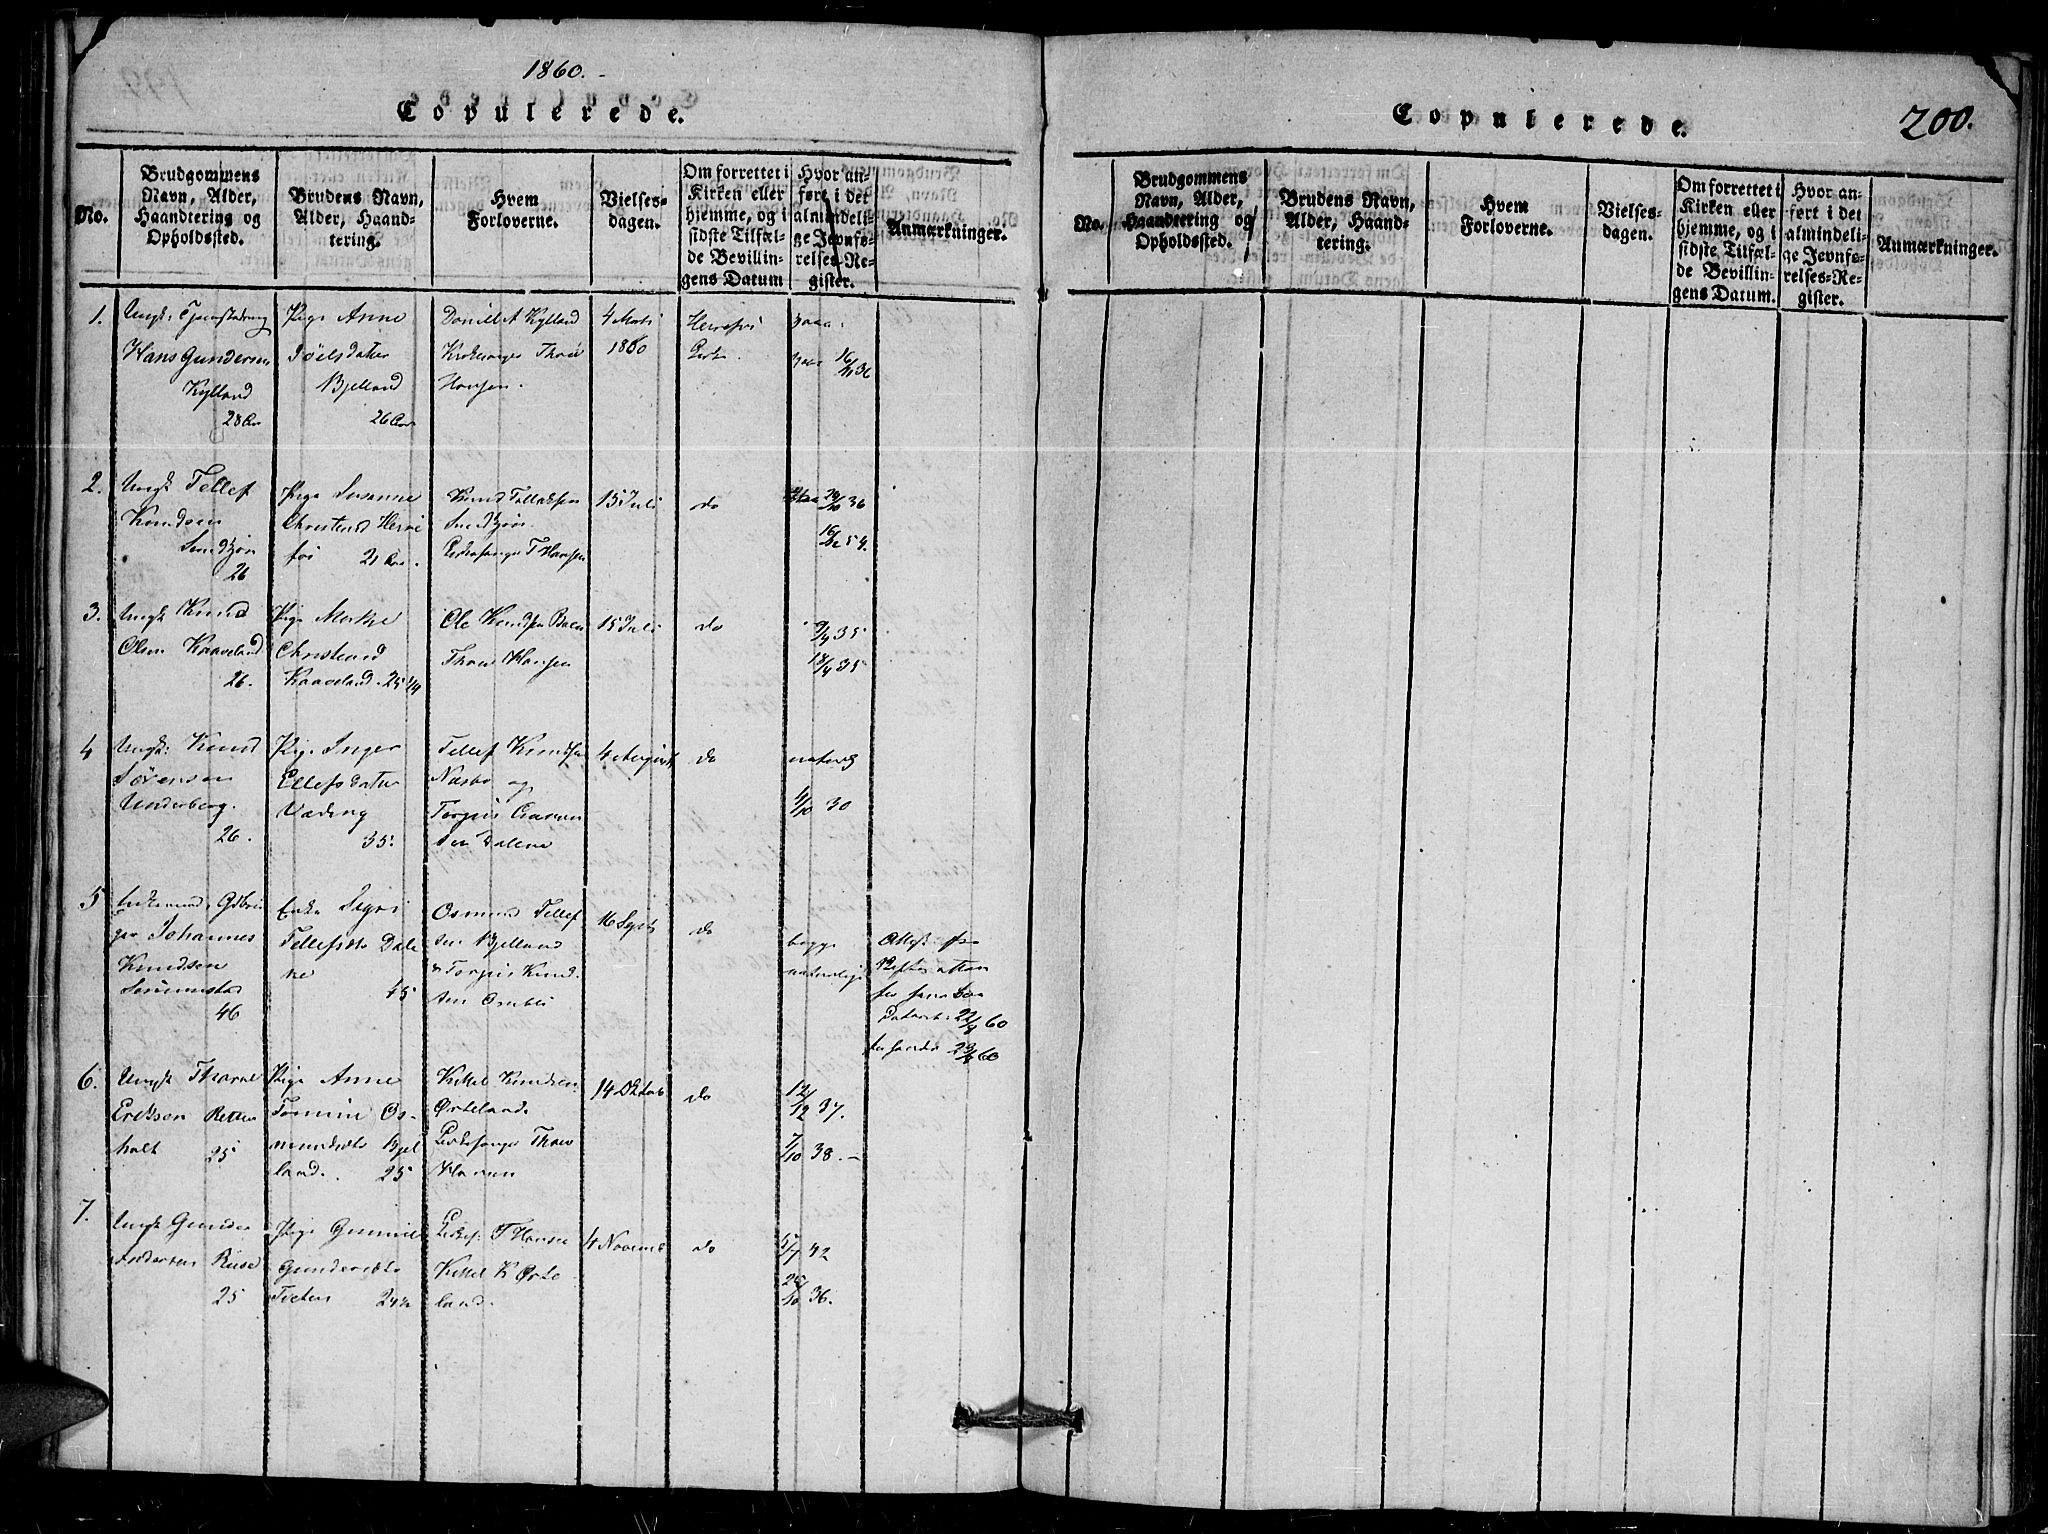 1860.
Copulerede.
No.
Brudgommens
Navn, Alder,
Haandtering og
Opholdssted.
Brudens Navn,
Alder, Haand-
tering.
Hvem
Forloverne.
Vielses-
dagen.
Om forrettet i
Kirken eller
hjemme, og i
sidste Tilfæl-
de Bevillin-
gens Datum
Hvor an-
ført i det
almindeli-
ge Jevnfø-
relses-Re-
gister.
Anmærkninger.
1.
Ungk:
Hans Gundersen
Kylland
28 Aar
Pige Anne
Joelsdatter
Bjelland
26 Aar
Daniel A Kylland
Kirkesanger Thore
Hansen.
4 Marts
1860
16/11 36
2.
Ungk Tellef
Knudsen
26
Pige Susanne
Christensd
21 Aar.
Knud Tellefsen
Kirkesanger T Hansen
15 Juli
do
36
54.
3.
Ungk Knud
Olsen Kaaveland
26.
Pige Marthe
Christensd
Kaaveland. 25 1/4
Ole Knudsen
Thore Hansen
15 Juli
do
9/4 35
18/4 35
4
Ungk: Knud
Sørensen
Underberg.
26.
Pige Inger
Ellefsdatter
Væding
35.
Tellef Knudsen
Næsbø og
Torjus Aanon
sen Dalene
4 August
do
naturlig
4/10 30
5
Enkemand
Johannes
Knudsen
46
Enke Sigri
Tellefsdtr Dale
ne
45
Osmund Tellef
sen Bjelland
Torjus Knud
sen
16 Sept
do
begge
naturlige
Attest fra
22/8 60
60
6.
Ungk Thorne
Erikson Retter
holt 25
Pige Anne
Tomine Os-
mundsdtr Bjel
land. 25
Kittel Knudsen
Ørteland.
Kirkesanger Thore
Hansen
14 Oktob
do
12/12 37.
7/10 38.-
7.
Ungk Gunder
Andersen Riise
25
Pige Gunnild
Gundersdtr
Tveten 24 1/2
Kirkes. T Hansen
Kittel K Ørte
land.
4 Novemb
do
5/7 42
25/10 36.
Copulerede.
200.
No.
Brudgommens
Navn, Alder,
Haandtering og
Opholdssted.
Brudens Navn,
Alder, Haand-
tering.
Hvem
Forloverne.
Vielses-
dagen.
Om forrettet i
Kirken eller
hjemme, og i
sidste Tilfæl-
de Bevillin-
gens Datum.
Hvor an-
ført i det
almindeli-
ge Jevnfø-
relses-Re-
gister.
Anmærkninger.